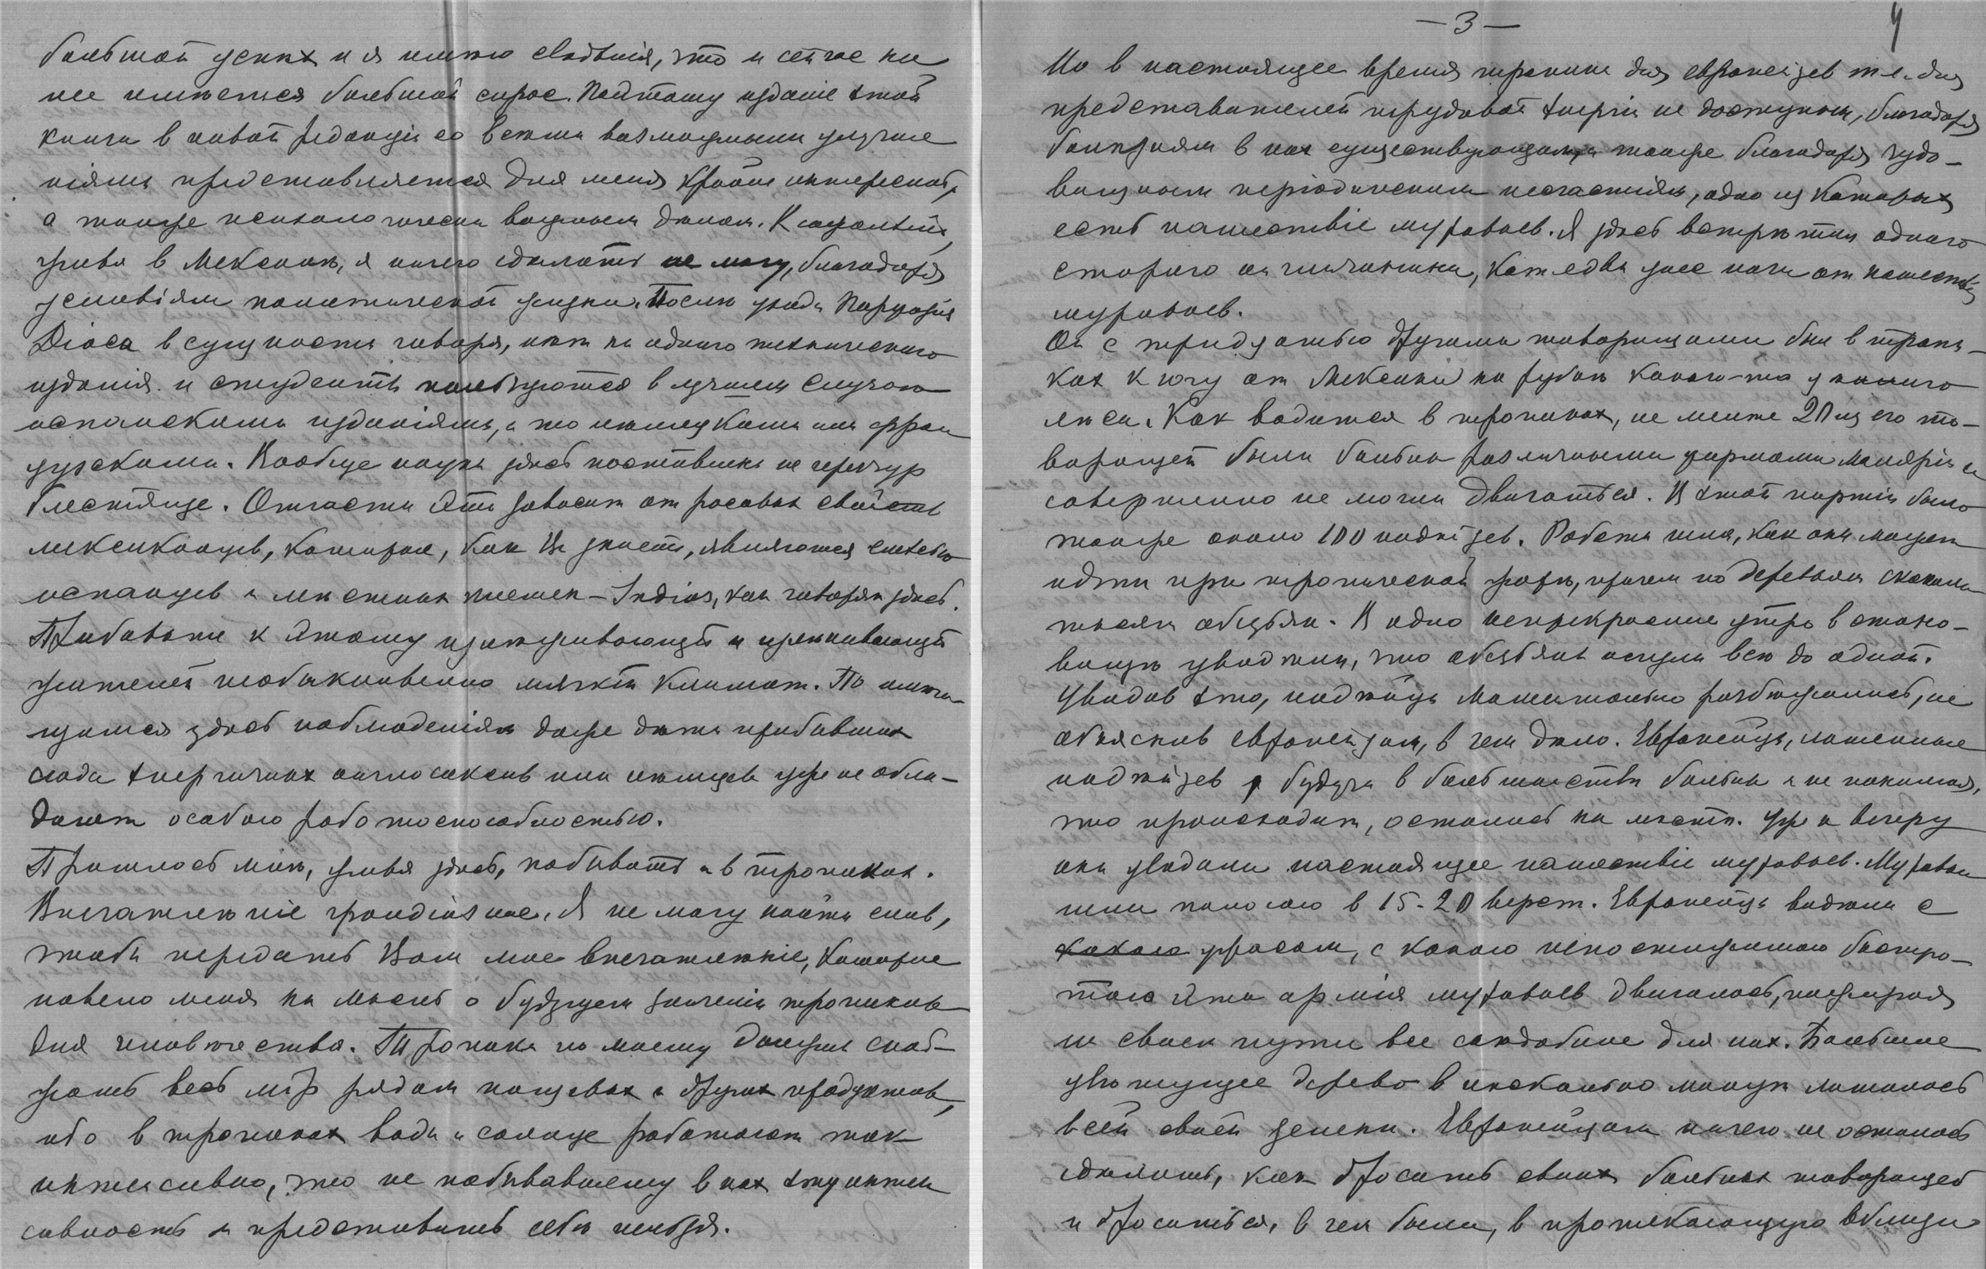 большой успех и я имею сведенія, что и сейчас на
нее имеется большой спрос. Поэтому изданіе этой
книги в новой редакціи со всеми возможными улучше
ніями представляется для меня крайне интересной,
а также психологически важным делом. К сожаленію,
живя в Мексике, я ничего сделать не могу, благодаря
условіям политической жизни. После ухода Порфирія
Diaca в сущности говоря, нет ни одного техническаго
изданія и студенты пользуются в лучшем случае
испанскими изданіями, а то немецкими или фран
цузскими. Вообще наука здесь поставлена не чересчур
блестяще. Отчасти это зависит от расовых свойств
мексиканцев, которые, как Вы знаете, являются смесью
испанцев и местных племен – Indios, как говорят здесь.
Прибавьте к этому изнеживающій и
жителей необыкновенно мягкій климат. По имею
щимся здесь наблюденіям даже дети прибывших
сюда энергичных англосаксов или немцев уже не обла–
дают особою работоспособностью.
Пришлось мне, живя здесь, побывать и в тропиках.
Впечатленіе грандіозное. Я не могу найти слов,
чтобы передать Вам мое впечатленіе, которое
навело меня на мысль о будущем значеніи тропиков
для человечества. Тропики по моему должны снаб–
жать весь мір рядом пищевых и других продуктов,
ибо в тропиках вода и солнце работают так
интенсивно, что не побывавшему в них эту интен
сивность и представить себе нельзя.
– 3 –
4
Но в настоящее время тропики для европейцев т.е. для
представителей трудовой энергіи не доступны, благодаря
болезням в них существующим, а также благодаря чудо–
вищным періодическим несчастіям, одно из которых
есть нашествіе муравьев. Я здесь встретил одного
старого англичанина, кот. едва унес ноги от нашествія
муравьев.
Он с тридцатью другими товарищами был в тропи–
ках к югу от Мексики на рубке какого-то
леса. Как водится в тропиках, не менее 20 из его то–
варищей были больны различными формами маляріи и
совершенно не могли двигаться. В этой партіи было
также около 100 индейцев. Работа шла, как она может
идти при тропической жаре, причем по деревьям скакали
тысячи обезьян. В одно непрекрасное утро в стано–
вище увидели, что обезьяны исчезли все до одной.
Увидав это, индейцы моментально разбежались, не
объяснив европейцам, в чем дело. Европейцы, лишенные
индейцев, будучи в большинстве больны и не понимая,
что происходит, остались на месте. Уже к вечеру
они увидали настоящее нашествіе муравьев. Муравьи
шли полосою в 15-20 верст. Европейцы видели с
какою ужасом, с какою непостижимою быстро–
тою эта армія муравьев двигалась, пожирая
на своем пути все съедобное для них. Большие
цветущее дерево в несколько минут лишалось
всей своей зелени. Европейцам ничего не осталось
сделать, как бросить своих больных товарищей
и броситься, в чем были, в протекающую вблизи